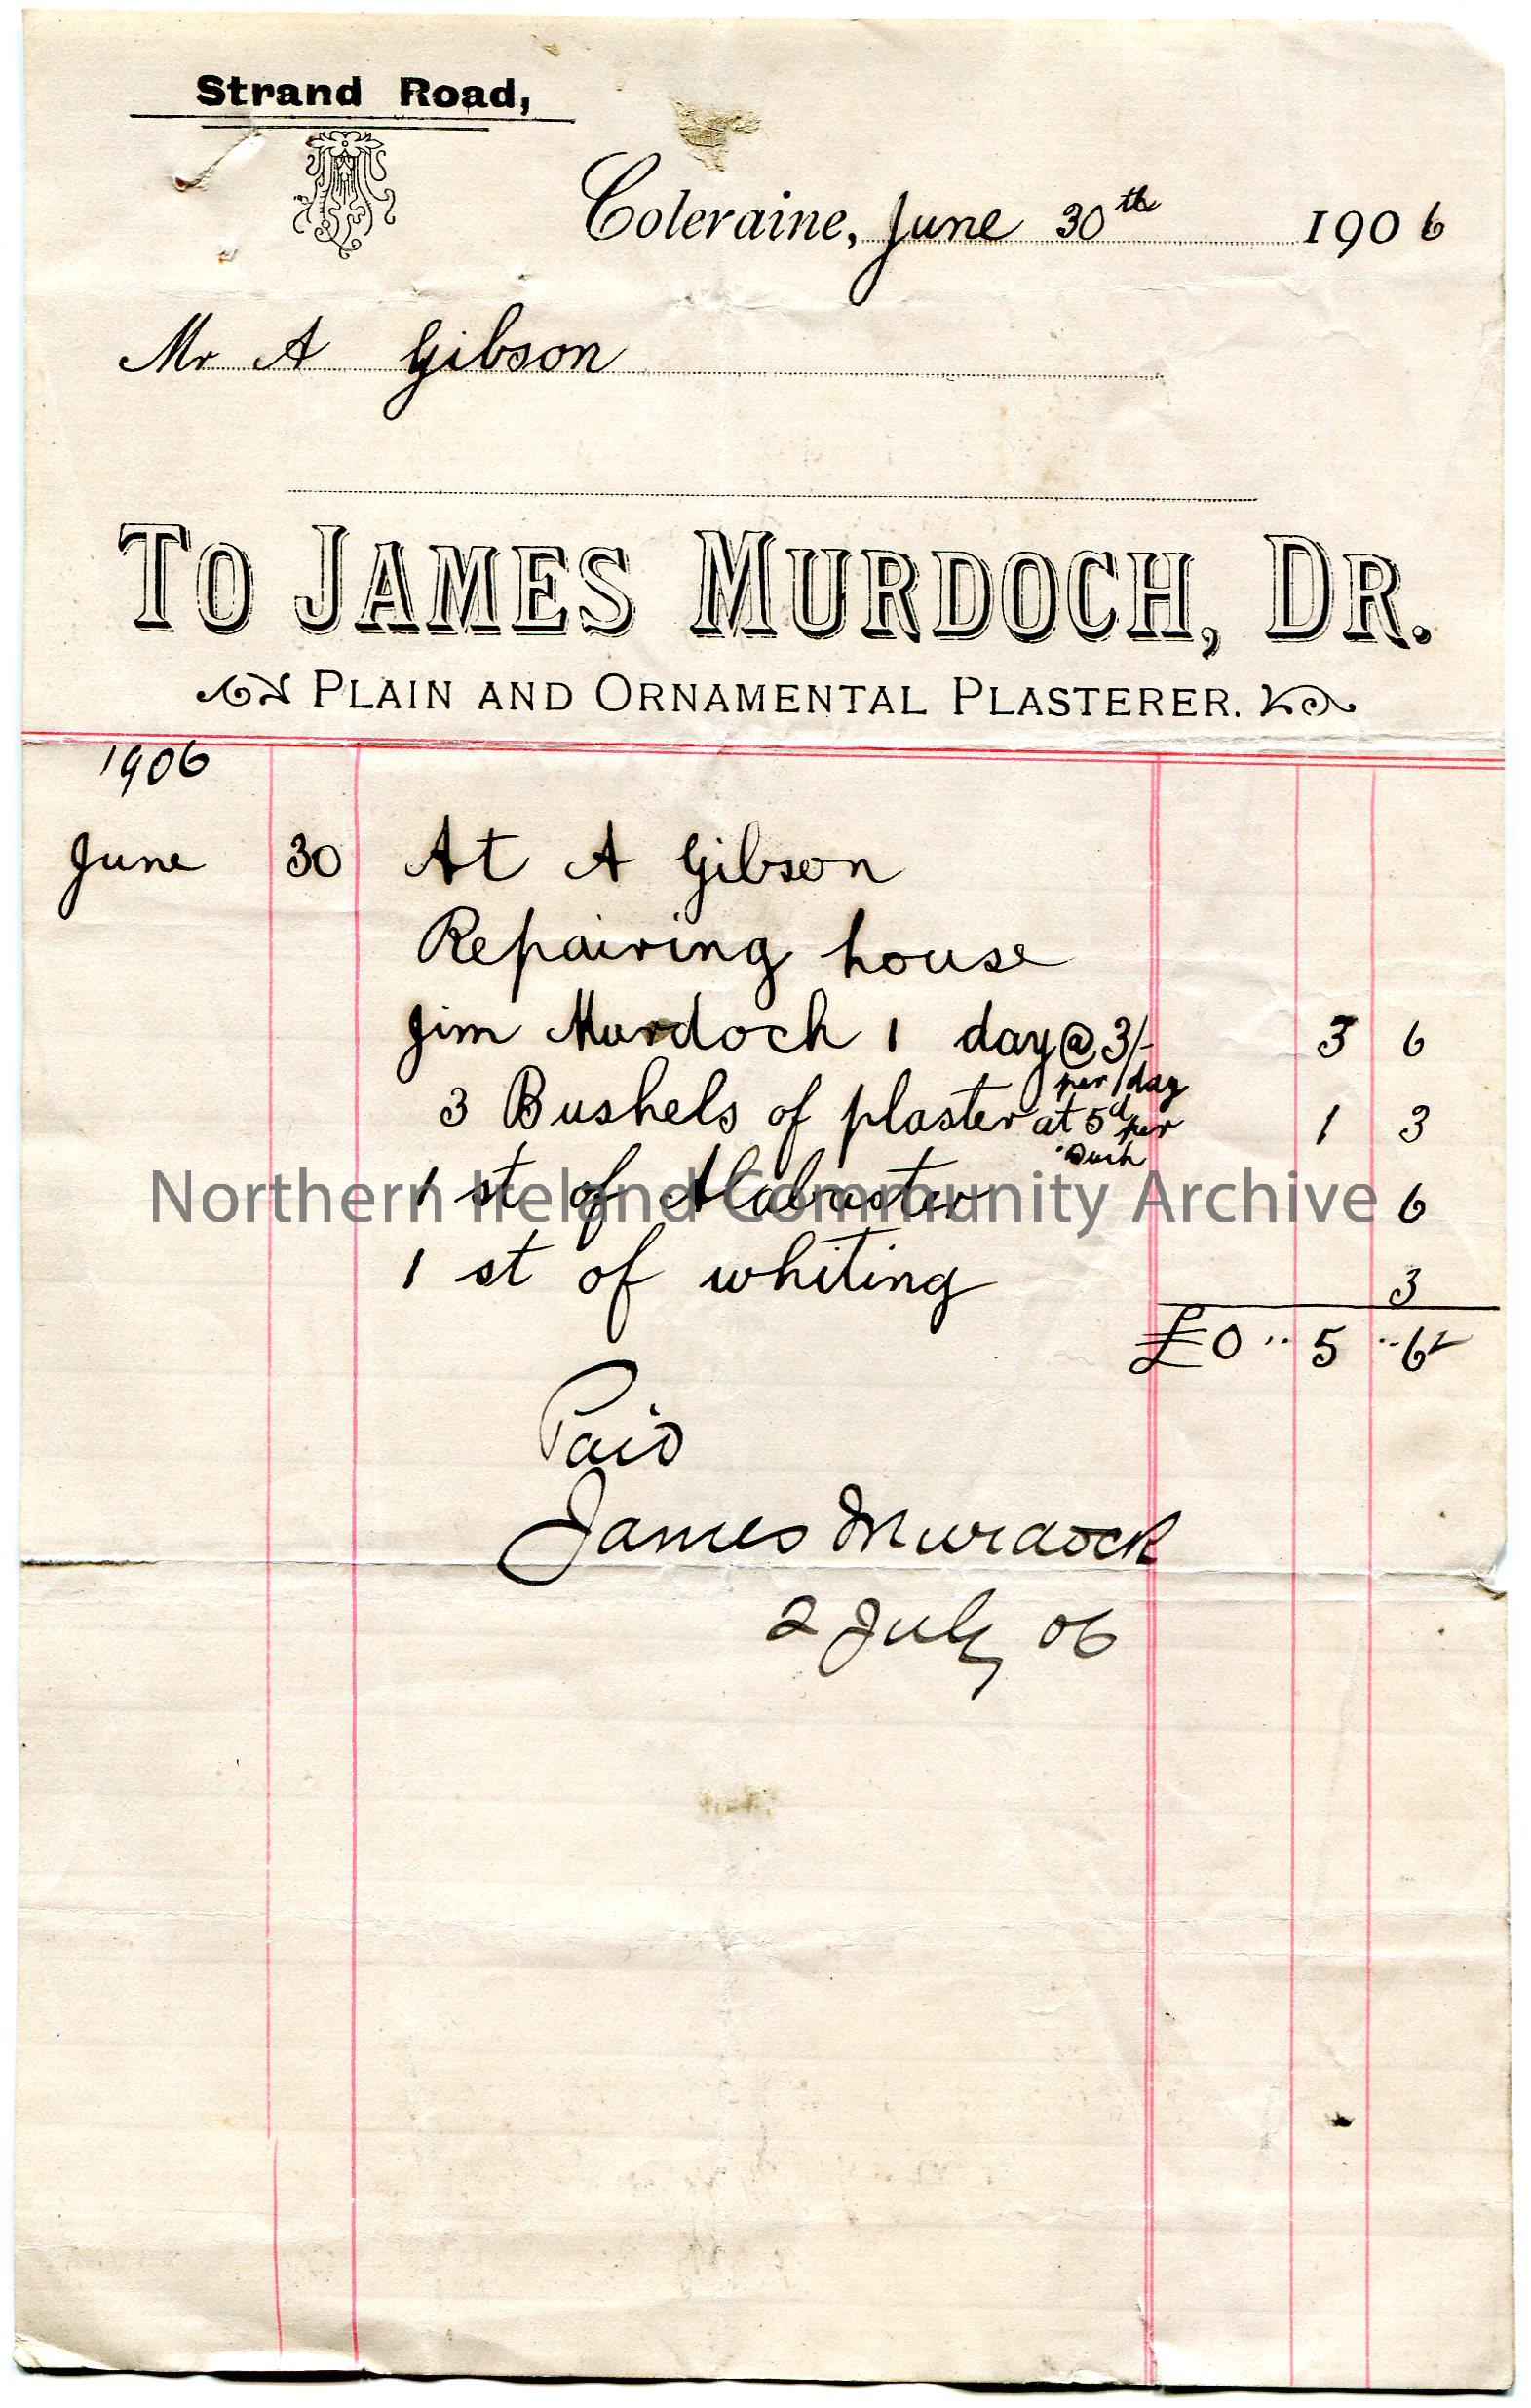 Strand Road,
Coleraine, June 30th 1906
Mr A Gibson
TO JAMES MURDOCH, DR.
PLAIN AND ORNAMENTAL PLASTERER.
1906
June 30 At A Gibson
Repairing house
Jim Murdoch 1 day @ 3/- per day 3 6
3 Bushels of plaster at 5d per Bush 1 3
1 st of Alabaster 6
1 st of whiting 3
£0 .. 5 .. 6
Paid
James Murdock
2 July 06
Northern Ireland Community Archive